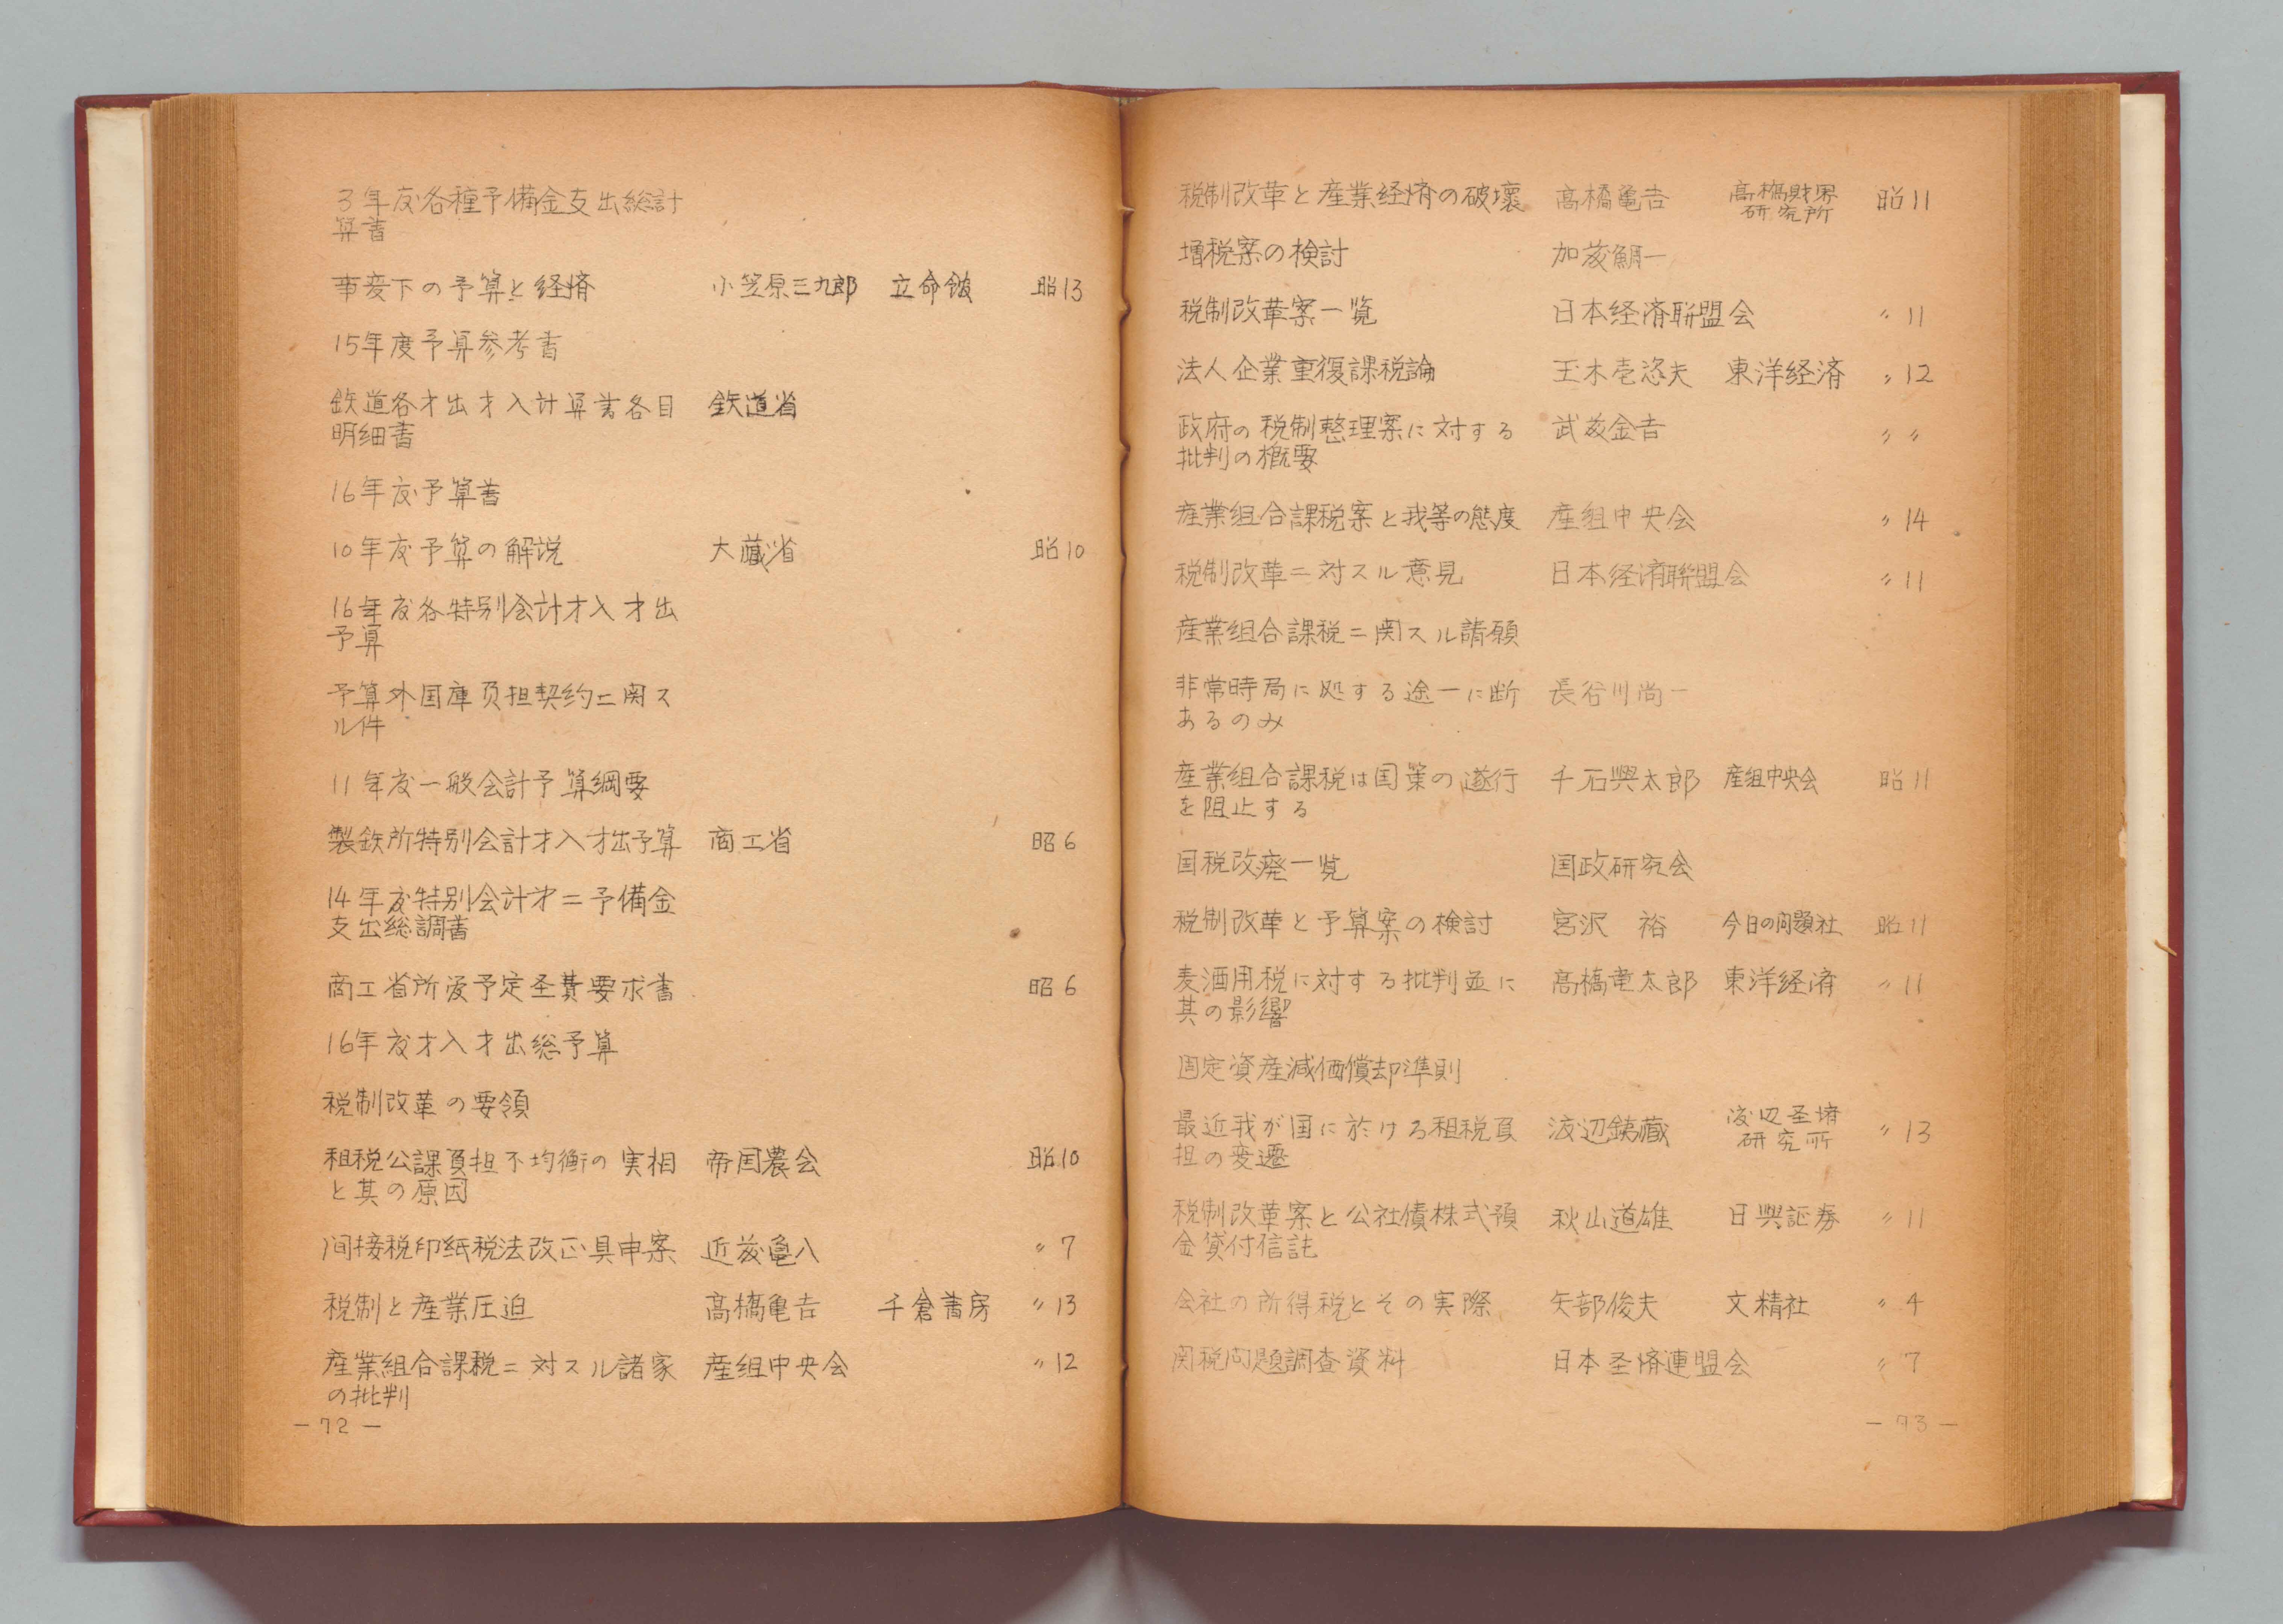 3年度各種予備金支出総計
算書
事変下の予算と経済 小笠原三九郎 立命館 昭13
15年度予算参考書
鉄道各才出才入計算書各目 鉄道省
明細書
16年度予算書
10年度予算の解説 大蔵省 昭10
16年度各特別会計才入才出
予算
予算外国庫負担契約ニ関ス
ル件
11年度一般会計予算綱要
製鉄所特別会計才入才出予算 商工省 昭6
14年度特別会計才ニ予備金
支出総調書
商工省所管予定圣費要求書 昭6
16年度才入才出総予算
税制改革の要領
租税公課負担不均衡の実相 帝国農会 昭10
と其の原因
間接税印紙税法改正具申案 近藤亀八 〃7
税制と産業圧迫 高橋亀吉 千倉書房 〃13
産業組合課税ニ対スル諸家 産組中央会 〃12
の批判
－72－
税制改革と産業経済の破壊 高橋亀吉 高橋財界 昭11
研究所
増税案の検討 加藤鯛一
税制改革案一覧 日本経済聯盟会 〃11
法人企業重復課税論 玉木壱悠夫 東洋経済 〃12
政府の税制整理案に対する 武藤金吉 〃〃
批判の概要
産業組合課税案と我等の態度 産組中央会 〃14
税制改革ニ対スル意見 日本経済聯盟会 〃11
産業組合課税ニ関スル請願
非常時局に処する途一に断 長谷川尚一
あるのみ
産業組合課税は国策の遂行 千石興太郎 産組中央会 昭11
を阻止する
国税改廃一覧 国政研究会
税制改革と予算案の検討 宮沢 裕 今日の問題社 昭11
麦酒用税に対する批判並に 高橋竜太郎 東洋経済 〃11
其の影響
固定資産減価償却準則
最近我が国に於ける租税負 渡辺銕蔵 渡辺圣済 〃13
担の変遷 研究所
税制改革案と公社債株式預 秋山道雄 日興証券 〃11
金貸付信託
会社の所得税とその実際 矢部俊夫 文精社 〃4
関税問題調査資料 日本圣済連盟会 〃7
－73－